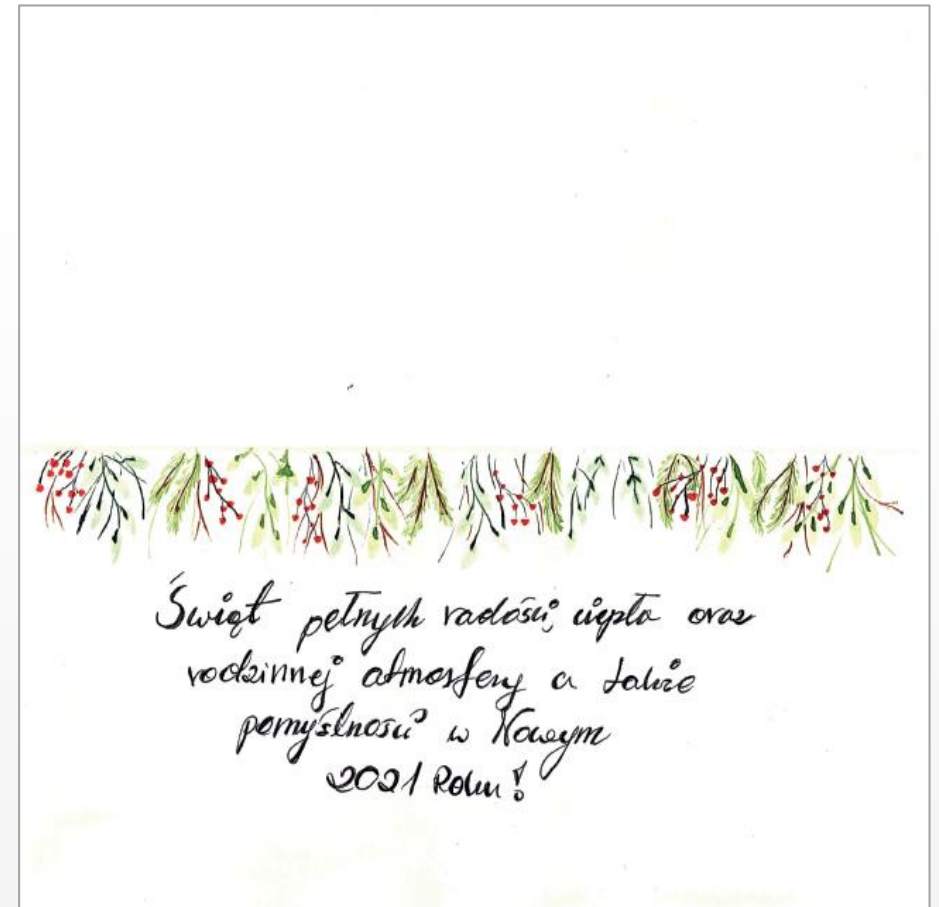 Świąt pełnych radości, ciepła oraz
rodzinnej atmosfery a także
pomyślności w Nowym
2021 Roku!